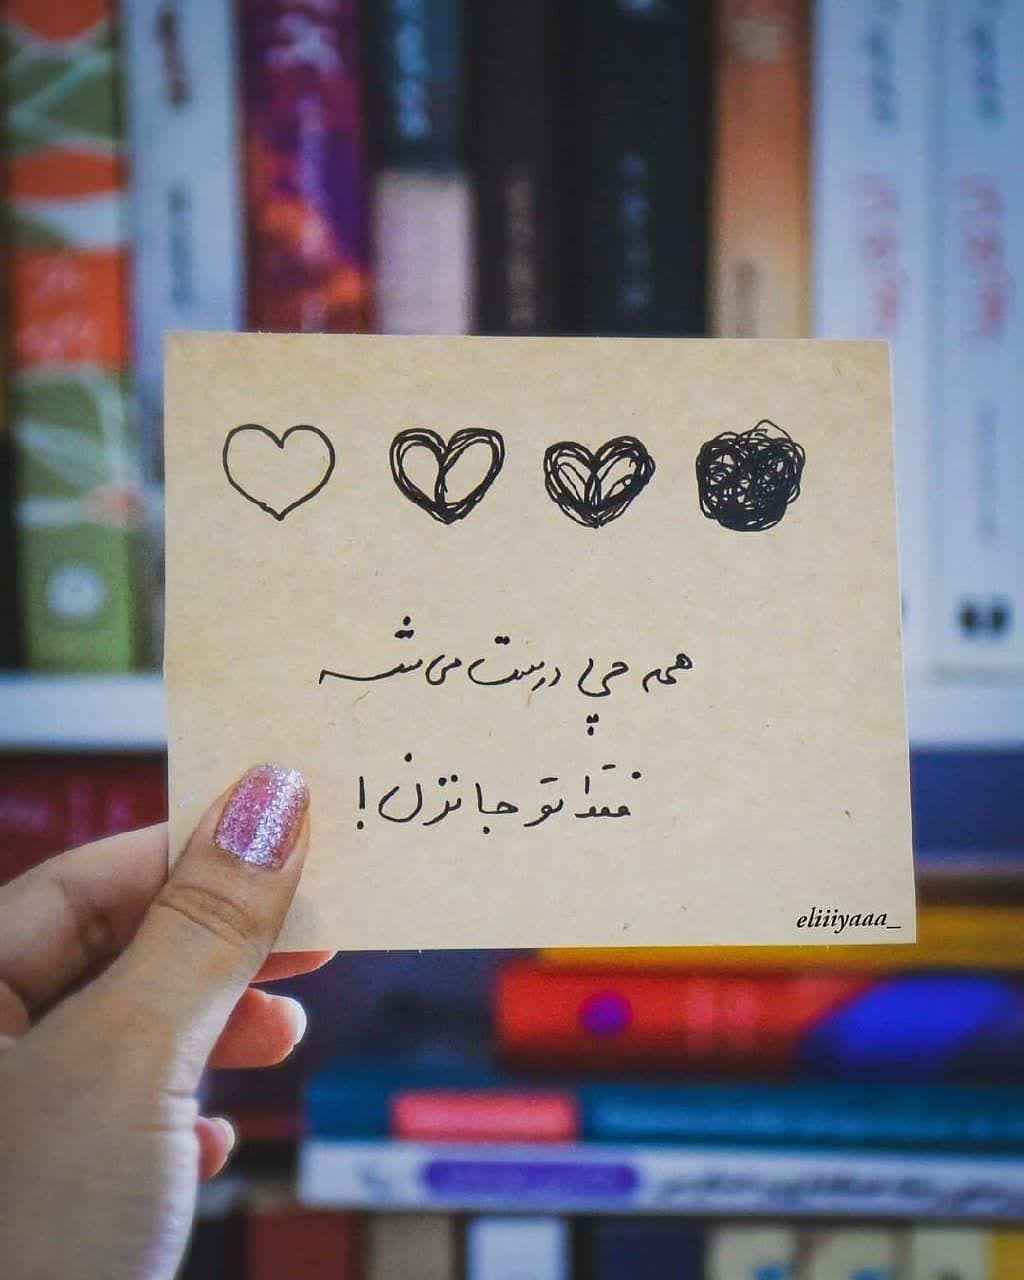 همه چی درست می‌شه
فقط تو جا نزن!
eliiiyaaa_